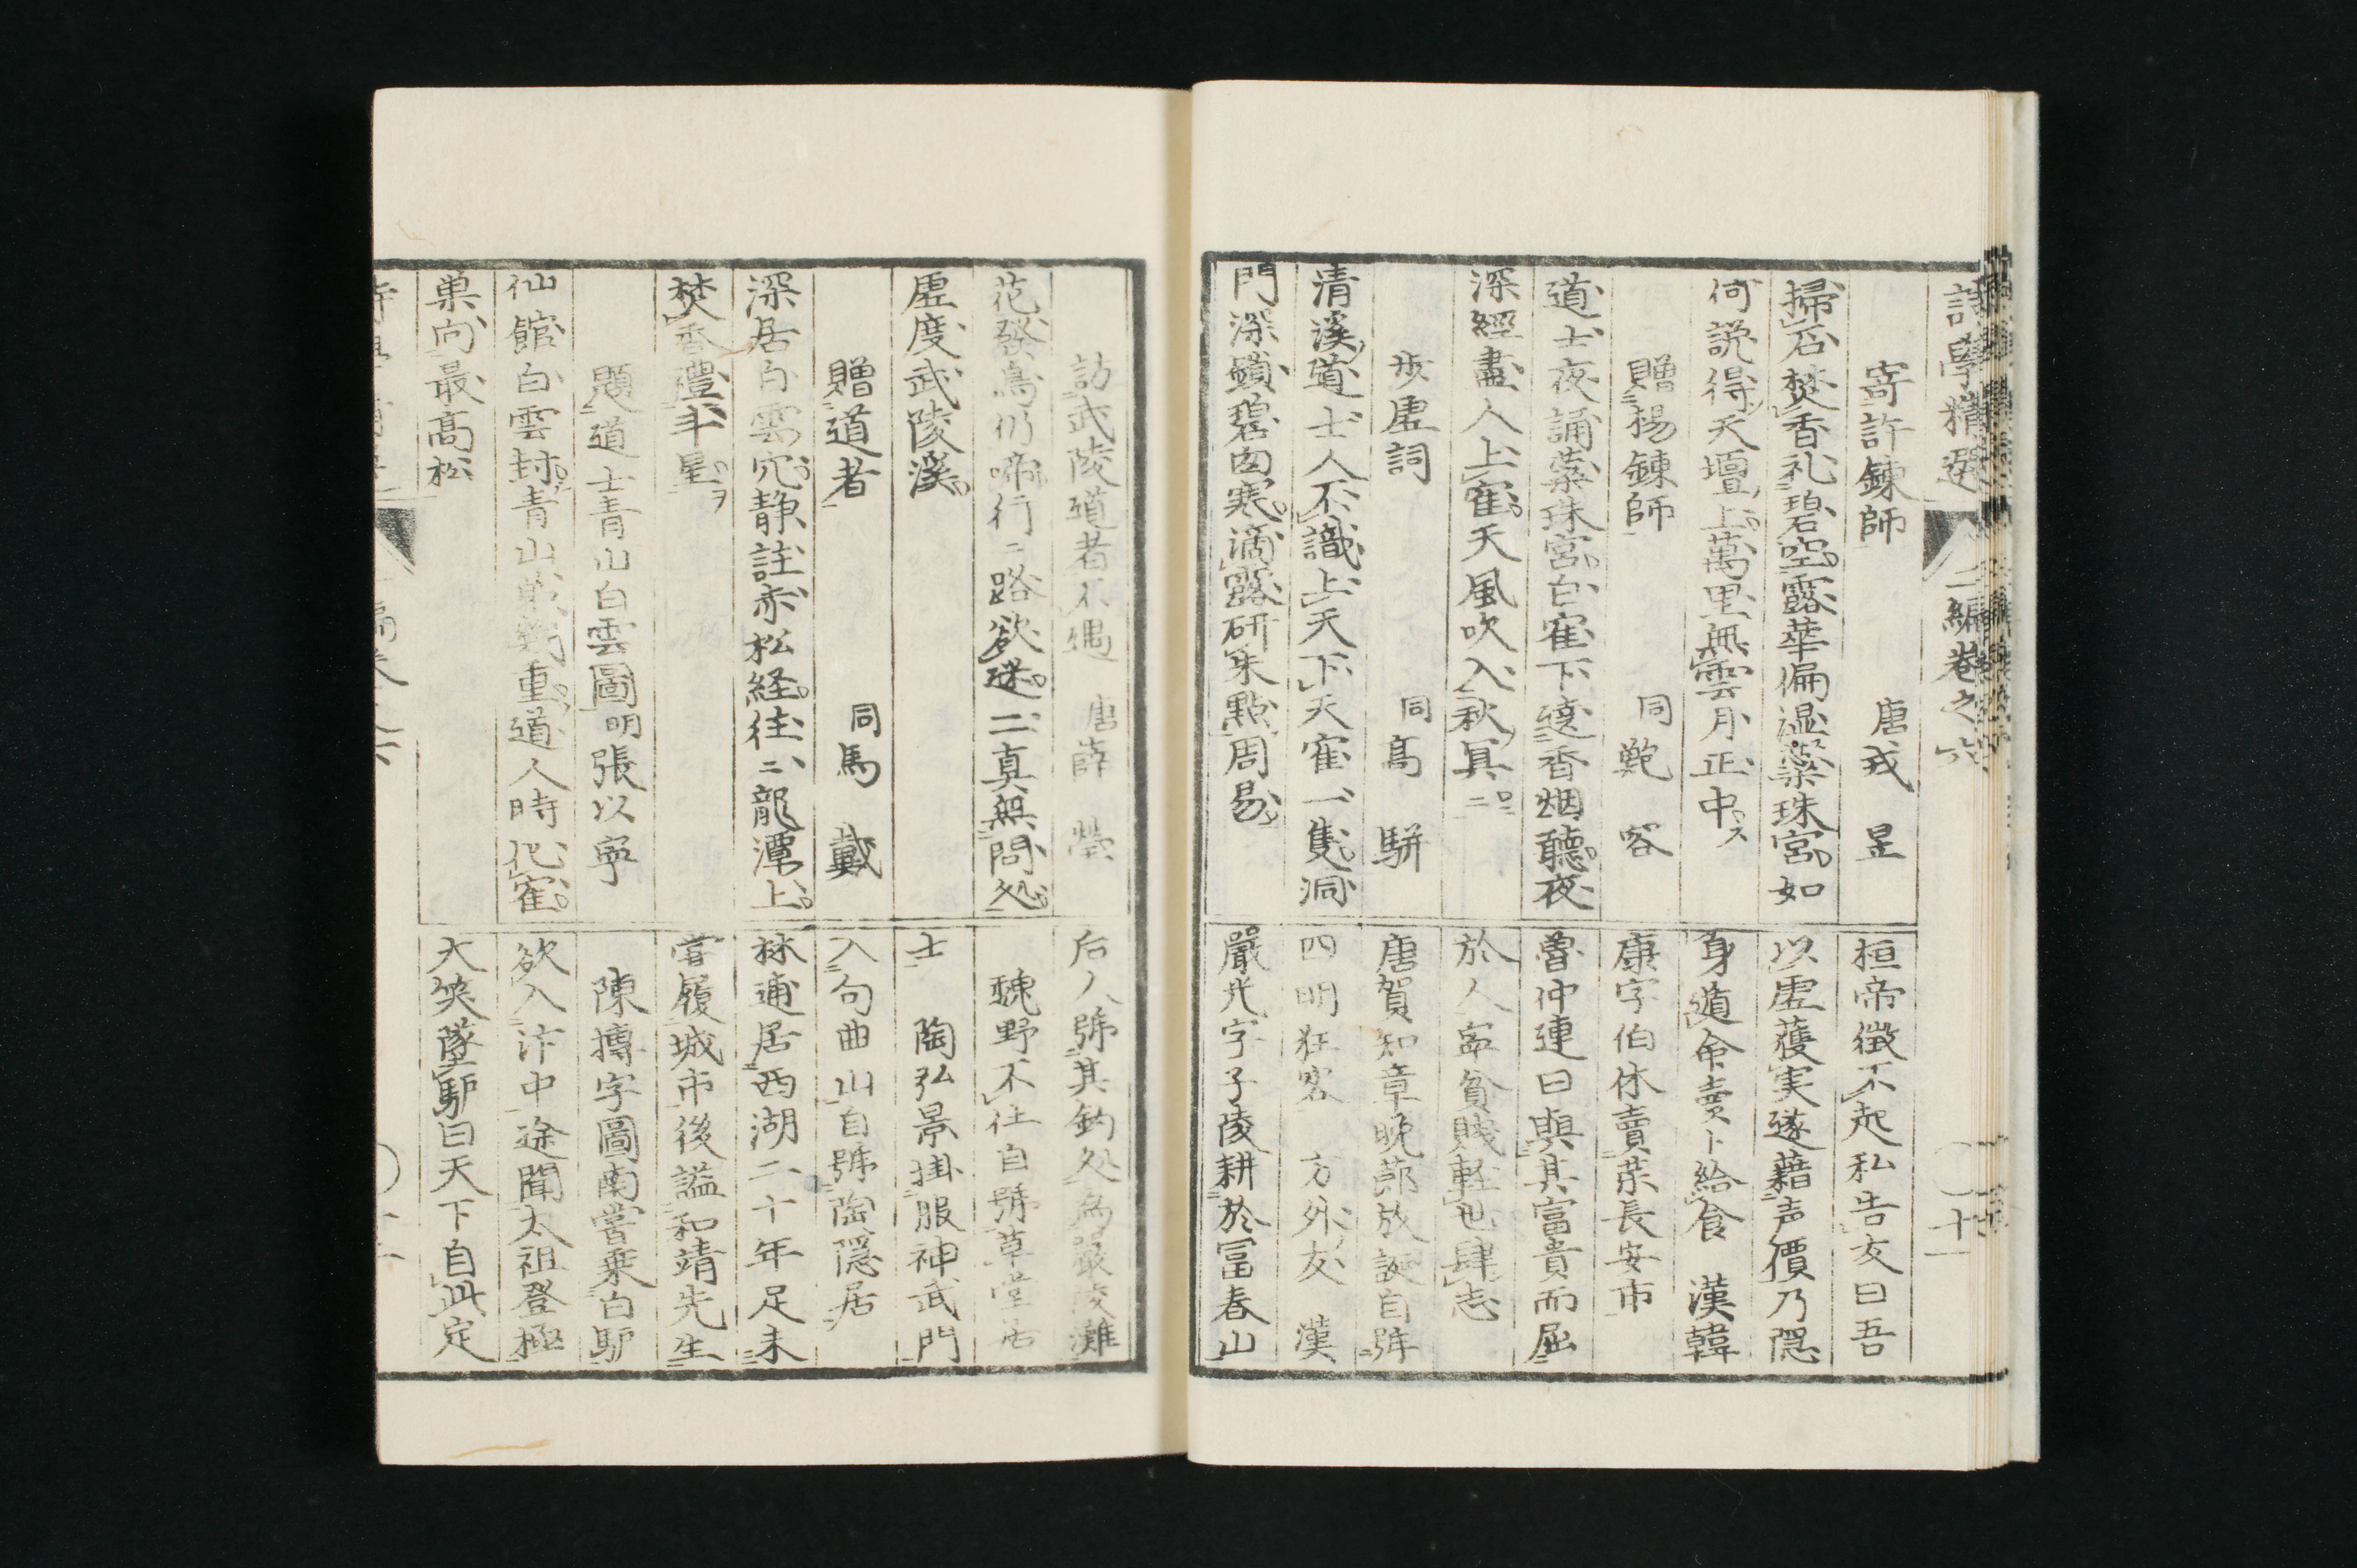 詩學精選 二編巻之六 十一
寄許錬師 唐戎昱
掃石焚香礼碧空露華偏湿蘂珠宮如
何説得天壇上萬里無雲月正中
贈楊錬師 同鄭容
道士夜誦蘂珠宮白寉下遶香烟聽夜
深經盡人上寉天風吹入秋冥〻
歩虚詞 同髙駢
清溪道士人不識上天下天寉一隻洞
門深鎖碧囱寒滴露研朱點周易
桓帝徴不起私告友曰吾
以虚獲実遂藉声價乃隠
身道命賣卜給食 漢韓
康字伯休賣薬長安市
魯仲連曰與其富貴而屈
於人寧貧賤軽世肆志
唐賀知章晩節放誕自號
四明狂客 方外友 漢
嚴光字子陵耕於富春山
訪武陵道者不遇 唐薛瑩
花發鳥仍啼行〻路欲迷二真無問処
虚度武陵溪
贈道者 同馬戴
深居白雲穴静註赤松経往〻龍潭上
焚香禮斗星
題道士青山白雲圖 明張以寧
仙館白雲封青山重道人時化寉
巣向最髙松
后人號其釣処為嚴陵灘
魏野不仕自號草堂居
士 陶弘景掛服神武門
入句曲山自號陶隠居
林逋居西湖二十年足未
嘗履城市後謚和靖先生
陳摶字圖南嘗乗白馿
欲入汴中途聞太祖登極
大笑墜馿曰天下自此定